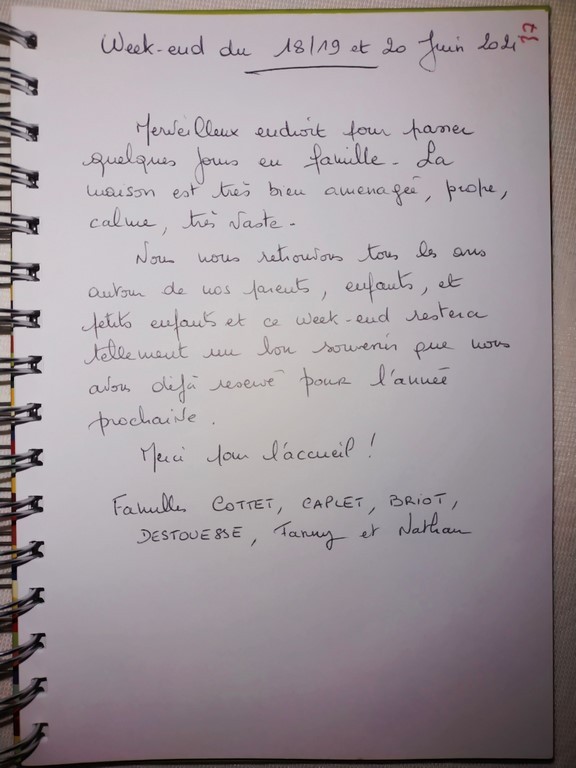 Week-end du 18/19 et 20 Juin 2021
37
Merveilleux endroit pour passer
quelques jours en famille. La
maison est très bien aménagée, propre,
calme, très vaste.
Nous nous retrouvons tous les ans
autour de nos parents, enfants, et
petits enfants et ce week-end restera
tellement un bon souvenir que nous
avons déjà reservé pour l'année
prochaine.
Merci pour l'accueil !
Familles COTTET, CAPLET, BRIOT,
DESTOUESSE, Fanny et Nathan